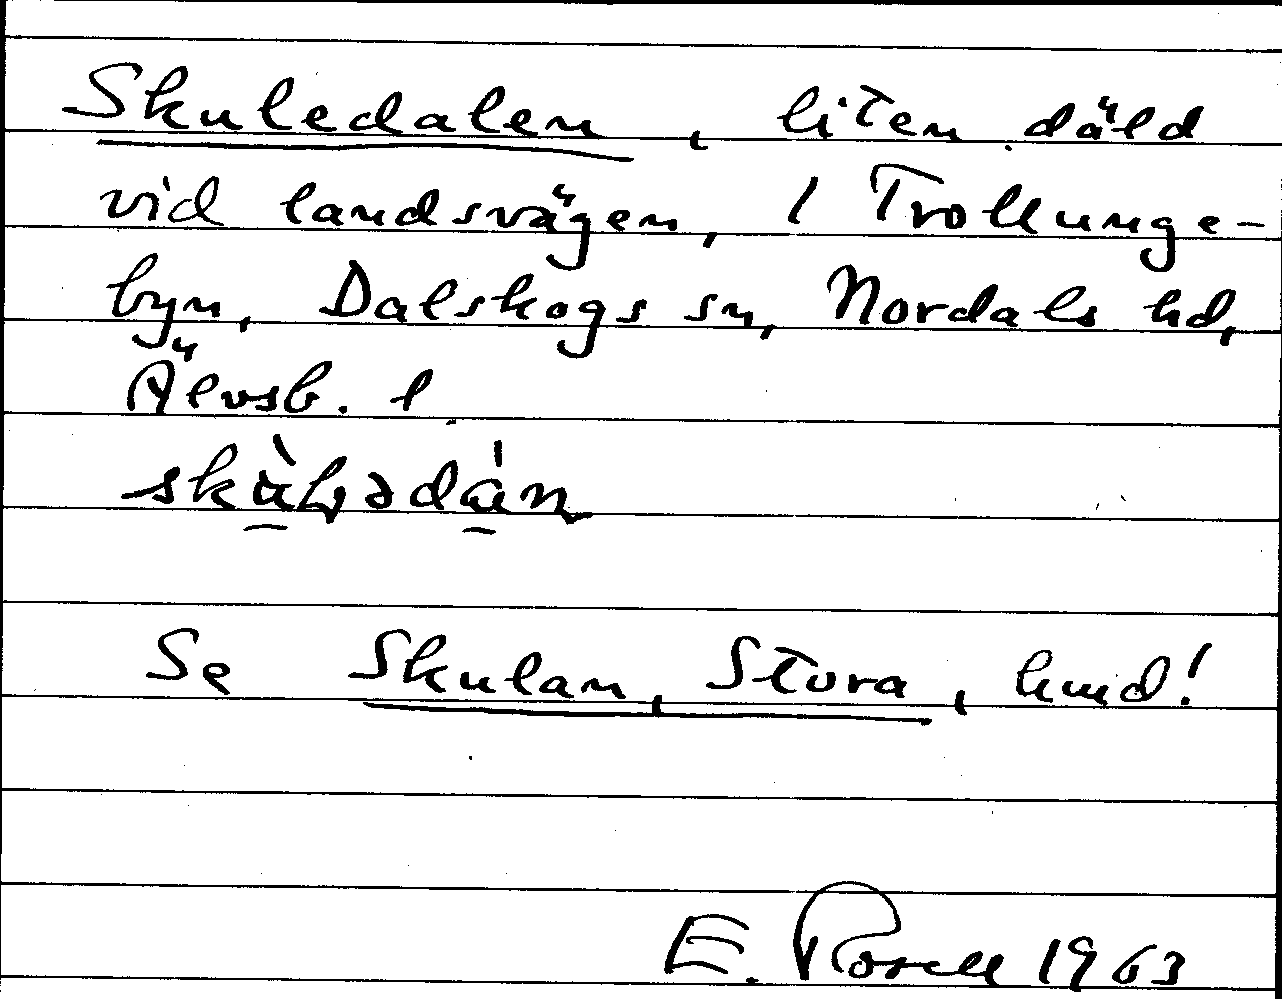 Skuledalen, liten däld
vid landsvägen, 1 Trollunge-
byn, Dalskogs sn, Nordals hd,
Älvsb. l
Se Skulan, Stora, hmd!
E. Rosell 1963